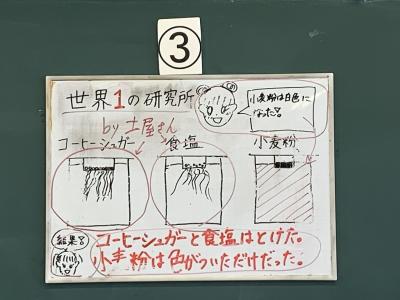 ③
世界1の研究所
by 土屋さん
小麦粉は白色に
なった!
コーヒーシュガー
食塩
小麦粉
結果!
コーヒーシュガーと食塩はとけた。
小麦粉は色がついただけだった。